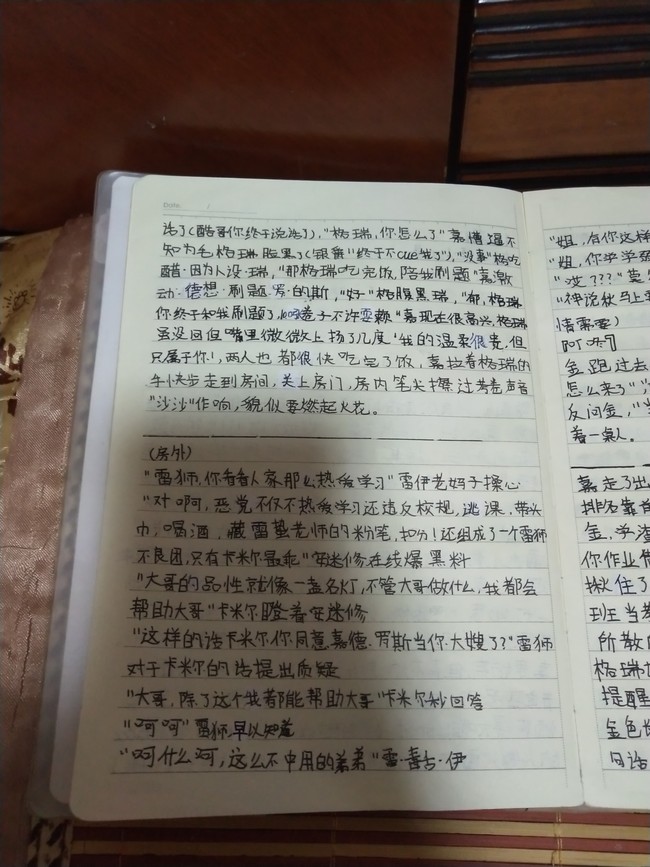 Date. /
话了(酷哥你终于说话了),"格瑞,你怎么了"嘉懵逼不
知为毛格瑞脸黑了(银爵"终于不cue我了"),"没事"格·吃
醋·因为人设·瑞,"那格瑞吃完饭,陪我刷题"嘉·激
动·德·想·刷题·罗·的斯,"好"格·腹黑·瑞,"耶,格瑞
你终于和我刷题了,嘉现在很高兴,格瑞
虽没回但嘴里微微上扬了几度'我的温柔很贵,但
只属于你!,两人也都很快吃完了饭,嘉拉着格瑞的
手快步走到房间,关上房门,房内笔尖擦过考卷声音
"沙沙"作响,貌似要燃起火花。
(房外)
"雷狮,你看看人家那么热爱学习"雷伊老妈子操心
"对啊,恶党不仅不热爱学习还违反校规,逃课,带头
巾,喝酒,藏雷蛰老师的粉笔,扣分!还组成了一个雷狮
不良团,只有卡米尔最乖"安迷修在线爆黑料
"大哥的品性就像一盏名灯,不管大哥做什么,我都会
帮助大哥"卡米尔瞪着安迷修
"这样的话卡米尔你同意嘉德·罗斯当你大嫂了?"雷狮
对于卡米尔的话提出质疑
"大哥,除了这个我都能帮助大哥"卡米尔秒回答
"呵呵"雷狮早以知道
"呵什么呵,这么不中用的弟弟"雷·毒舌·伊
"姐,有你这样
"姐,你学学
"哎???"
"神说秋马上
情需要)
金跑过去
怎么来了"
反问金,"
着一桌人。
嘉走了出
排名靠
金,学渣
你作业
揪住了
班主
所教
格瑞
提醒
金色
句话